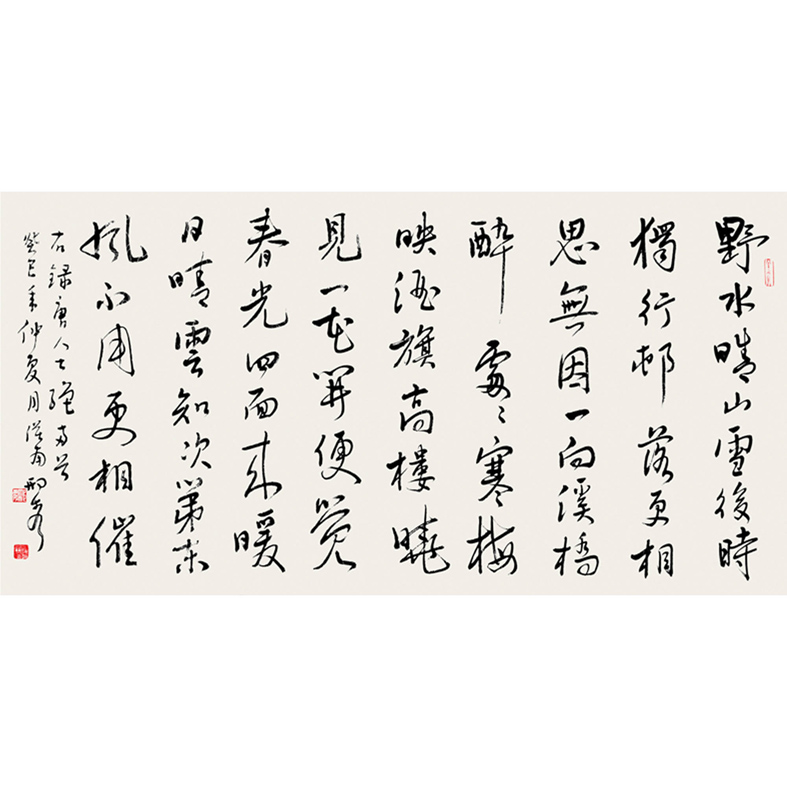 野水晴山雪後時
獨行邨落更相
思無因一向溪橋
醉處〻寒梅
映酒旗高樓曉
見一花開便覺
春光四面來暖
日晴雲知次第東
風不用更相催
右錄唐人七絕
癸巳年仲夏月